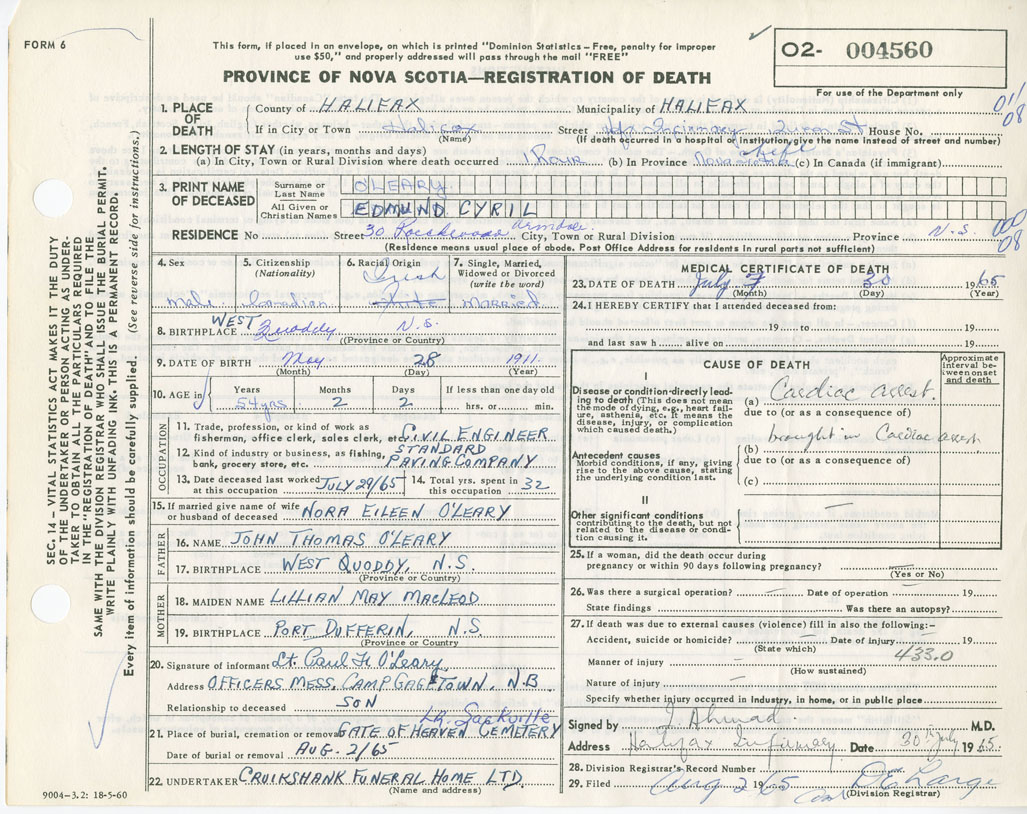 FORM 6
This form, if placed in an envelope, on which is printed "Dominion Statistics – Free, penalty for improper
use $50," and properly addressed will pass through the mail "FREE"
PROVINCE OF NOVA SCOTIA—REGISTRATION OF DEATH
02- 004560
For use of the Department only
011
08
1. PLACE OF DEATH
County of HALIFAX Municipality of HALIFAX
If in City or Town Halifax (Name) Street Hfx Infirmary Queen St House No.
(If death occurred in a hospital or institution, give the name instead of street and number)
2. LENGTH OF STAY (in years, months and days)
(a) In City, Town or Rural Division where death occurred 1 hour (b) In Province Nova Scotia life (c) In Canada (if immigrant)
3. PRINT NAME OF DECEASED
Surname or Last Name O'LEARY
All Given or Christian Names EDMUND CYRIL
RESIDENCE No Street 30 Armdale City, Town or Rural Division Province N.S.
000
08
(Residence means usual place of abode. Post Office Address for residents in rural parts not sufficient)
4. Sex male
5. Citizenship (Nationality) Canadian
6. Racial Origin Irish White
7. Single, Married, Widowed or Divorced (write the word) MARRIED
8. BIRTHPLACE WEST Quoddy N.S.
(Province or Country)
9. DATE OF BIRTH May 28 1911
(Month) (Day) (Year)
10. AGE in
Years 54 yrs Months 2 Days 2 If less than one day old hrs. or min.
OCCUPATION
11. Trade, profession, or kind of work as
fisherman, office clerk, sales clerk, etc. CIVIL ENGINEER
12. Kind of industry or business, as fishing, STANDARD
bank, grocery store, etc. PAVING COMPANY
13. Date deceased last worked at this occupation JULY 29/65
14. Total yrs. spent in this occupation 32
15. If married give name of wife or husband of deceased NORA EILEEN O'LEARY
FATHER
16. NAME JOHN THOMAS O'LEARY
17. BIRTHPLACE WEST QUODDY, N.S.
(Province or Country)
MOTHER
18. MAIDEN NAME LILLIAN MAY MACLEOD
19. BIRTHPLACE PORT DUFFERIN, N.S.
(Province or Country)
20. Signature of informant Lt. Paul F. O'Leary
Address OFFICERS MESS, CAMP GAGETOWN, N.B.
Relationship to deceased SON
Lr. Sackville
21. Place of burial, cremation or removal GATE OF HEAVEN CEMETERY
Date of burial or removal AUG. 2/65
22. UNDERTAKER CRUIKSHANK FUNERAL HOME LTD.
(Name and address)
9004–3.2: 18-5-60
MEDICAL CERTIFICATE OF DEATH
23. DATE OF DEATH July 30 1965
(Month) (Day) (Year)
24. I HEREBY CERTIFY that I attended deceased from:
19 to 19
and last saw h alive on 19
CAUSE OF DEATH
Approximate interval between onset and death
I
Disease or condition directly leading to death (This does not mean the mode of dying, e.g., heart failure, asthenia, etc. It means the disease, injury, or complication which caused death.)
(a) Cardiac arrest.
due to (or as a consequence of)
brought in Cardiac arrest
Antecedent causes
Morbid conditions, if any, giving rise to the above cause, stating the underlying condition last.
(b)
due to (or as a consequence of)
(c)
II
Other significant conditions
contributing to the death, but not related to the disease or condition causing it.
25. If a woman, did the death occur during
pregnancy or within 90 days following pregnancy?
(Yes or No)
26. Was there a surgical operation? Date of operation 19
State findings Was there an autopsy?
27. If death was due to external causes (violence) fill in also the following:–
Accident, suicide or homicide? Date of injury 19
(State which)
433.0
Manner of injury
(How sustained)
Nature of injury
Specify whether injury occurred in industry, in home, or in public place
Signed by I Ahmad M.D.
Address Halifax Infirmary Date 30th July 1965
28. Division Registrar's Record Number
29. Filed Aug 2 1965
(Division Registrar)
SEC. 14 – VITAL STATISTICS ACT MAKES IT THE DUTY
OF THE UNDERTAKER OR PERSON ACTING AS UNDER-
TAKER TO OBTAIN ALL THE PARTICULARS REQUIRED
IN THE "REGISTRATION OF DEATH" AND TO FILE THE
SAME WITH THE DIVISION REGISTRAR WHO SHALL ISSUE THE BURIAL PERMIT.
WRITE PLAINLY WITH UNFADING INK. THIS IS A PERMANENT RECORD.
Every item of information should be carefully supplied. (See reverse side for instructions.)